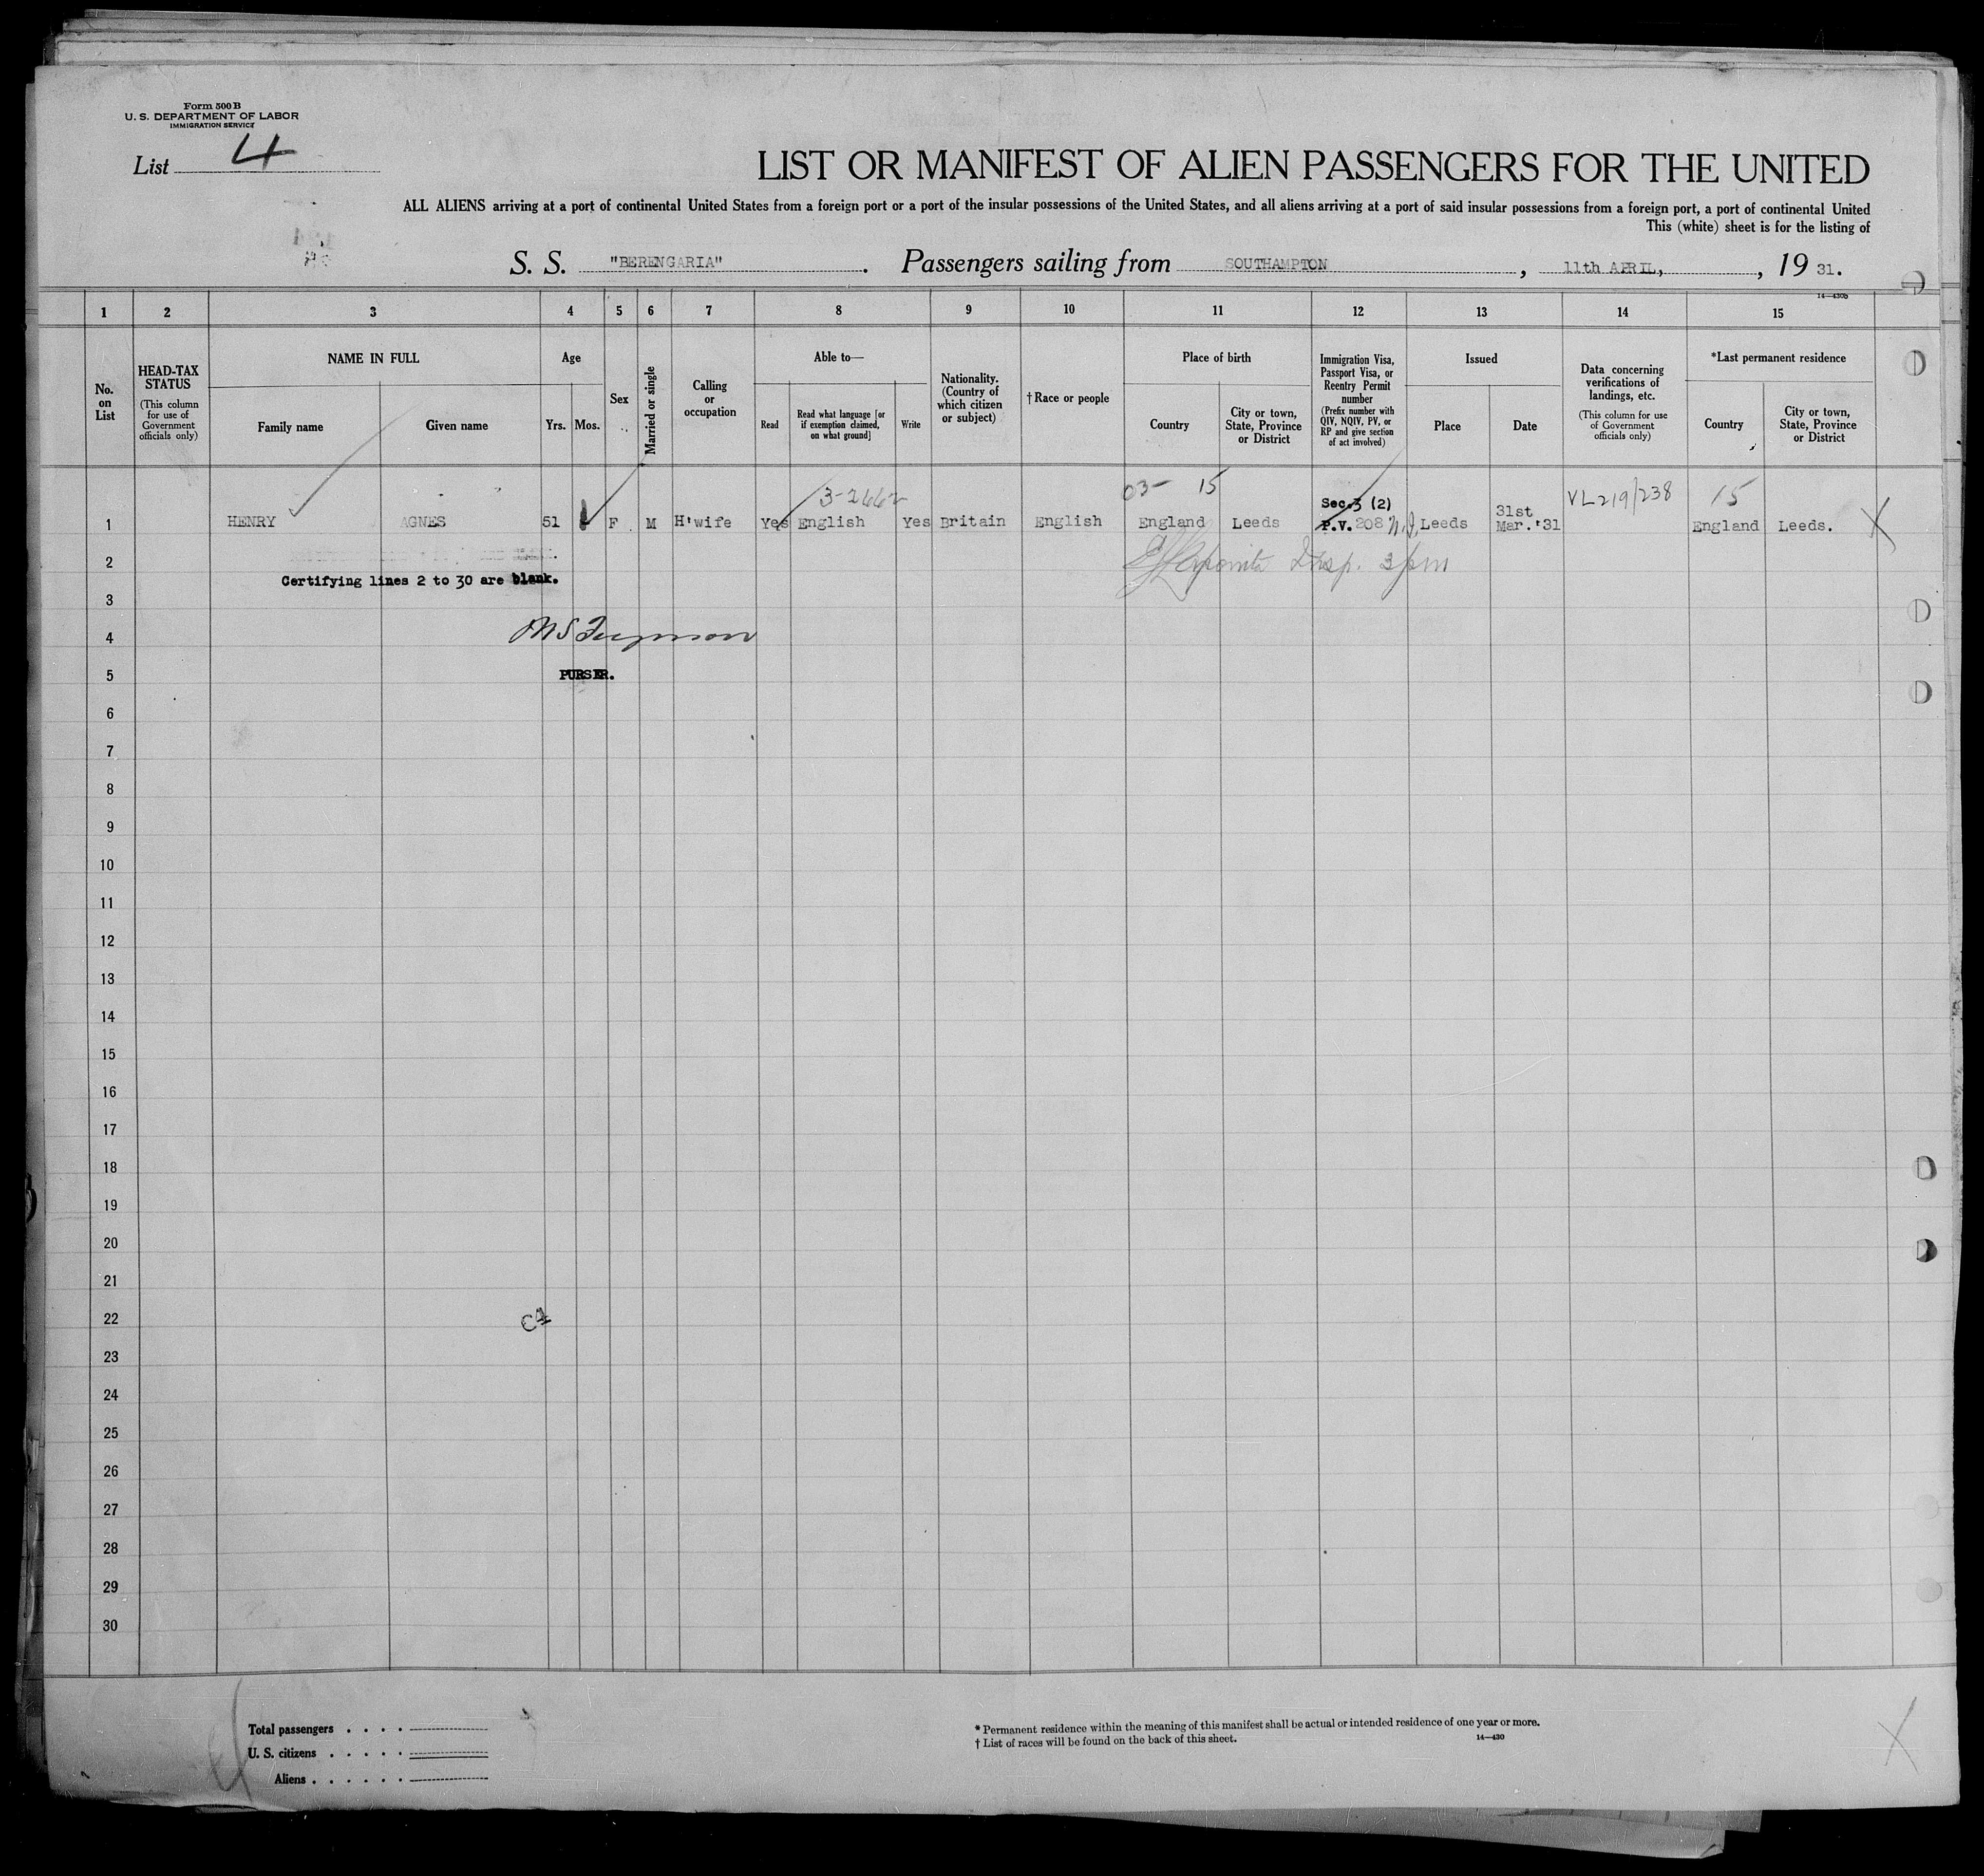 Form 500 B
U. S. DEPARTMENT OF LABOR
IMMIGRATION SERVICE
List 4
LIST OR MANIFEST OF ALIEN PASSENGERS FOR THE UNITED
ALL ALIENS arriving at a port of continental United States from a foreign port or a port of the insular possessions of the United States, and all aliens arriving at a port of said insular possessions from a foreign port, a port of continental United
This (white) sheet is for the listing of
S. S. "BERENGARIA". Passengers sailing from SOUTHAMPTON, 11th APRIL, , 19 31.
14—430B
1 2 3 4 5 6 7 8 9 10 11 12 13 14 15
No. on List
HEAD-TAX STATUS
(This column for use of Government officials only)
NAME IN FULL
Family name
Given name
Age
Yrs.
Mos.
Sex
Married or single
Calling or occupation
Able to—
Read
Read what language [or if exemption claimed, on what ground]
Write
Nationality. (Country of which citizen or subject)
† Race or people
Place of birth
Country
City or town, State, Province or District
Immigration Visa, Passport Visa, or Reentry Permit number
(Prefix number with QIV, NQIV, PV, or RP and give section of act involved)
Issued
Place
Date
Data concerning verifications of landings, etc.
(This column for use of Government officials only)
*Last permanent residence
Country
City or town, State, Province or District
3-2662 03- 15 Sec.3 (2) 31st VL219/238 15
1 HENRY AGNES 51 F M H'wife Yes English Yes Britain English England Leeds P.V. 208 Leeds Mar.'31 England Leeds. X
2 Insp. 3pm
Certifying lines 2 to 30 are blank.
3
4
5 PURSER.
6
7
8
9
10
11
12
13
14
15
16
17
18
19
20
21
22 C4
23
24
25
26
27
28
29
30
Total passengers . . . .
U. S. citizens . . . . .
Aliens . . . . . .
* Permanent residence within the meaning of this manifest shall be actual or intended residence of one year or more.
† List of races will be found on the back of this sheet.
14—430
X